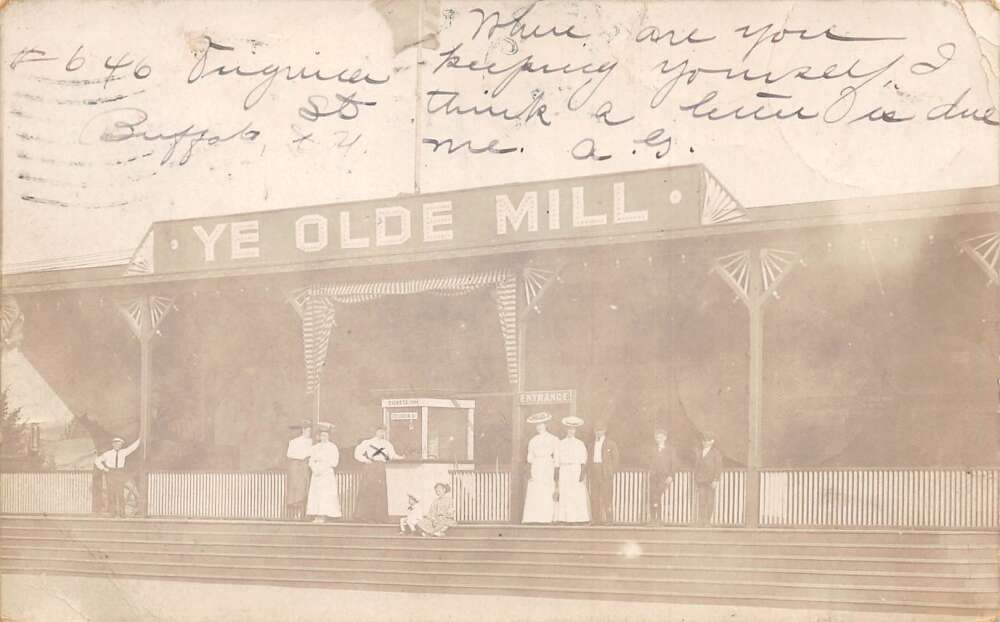 # 646 Virginia
St
Buffalo, N.Y.
Where are you
keeping yourself, I
think a letter is due
me. A.G.
YE OLDE MILL
TICKETS 10¢
ENTRANCE